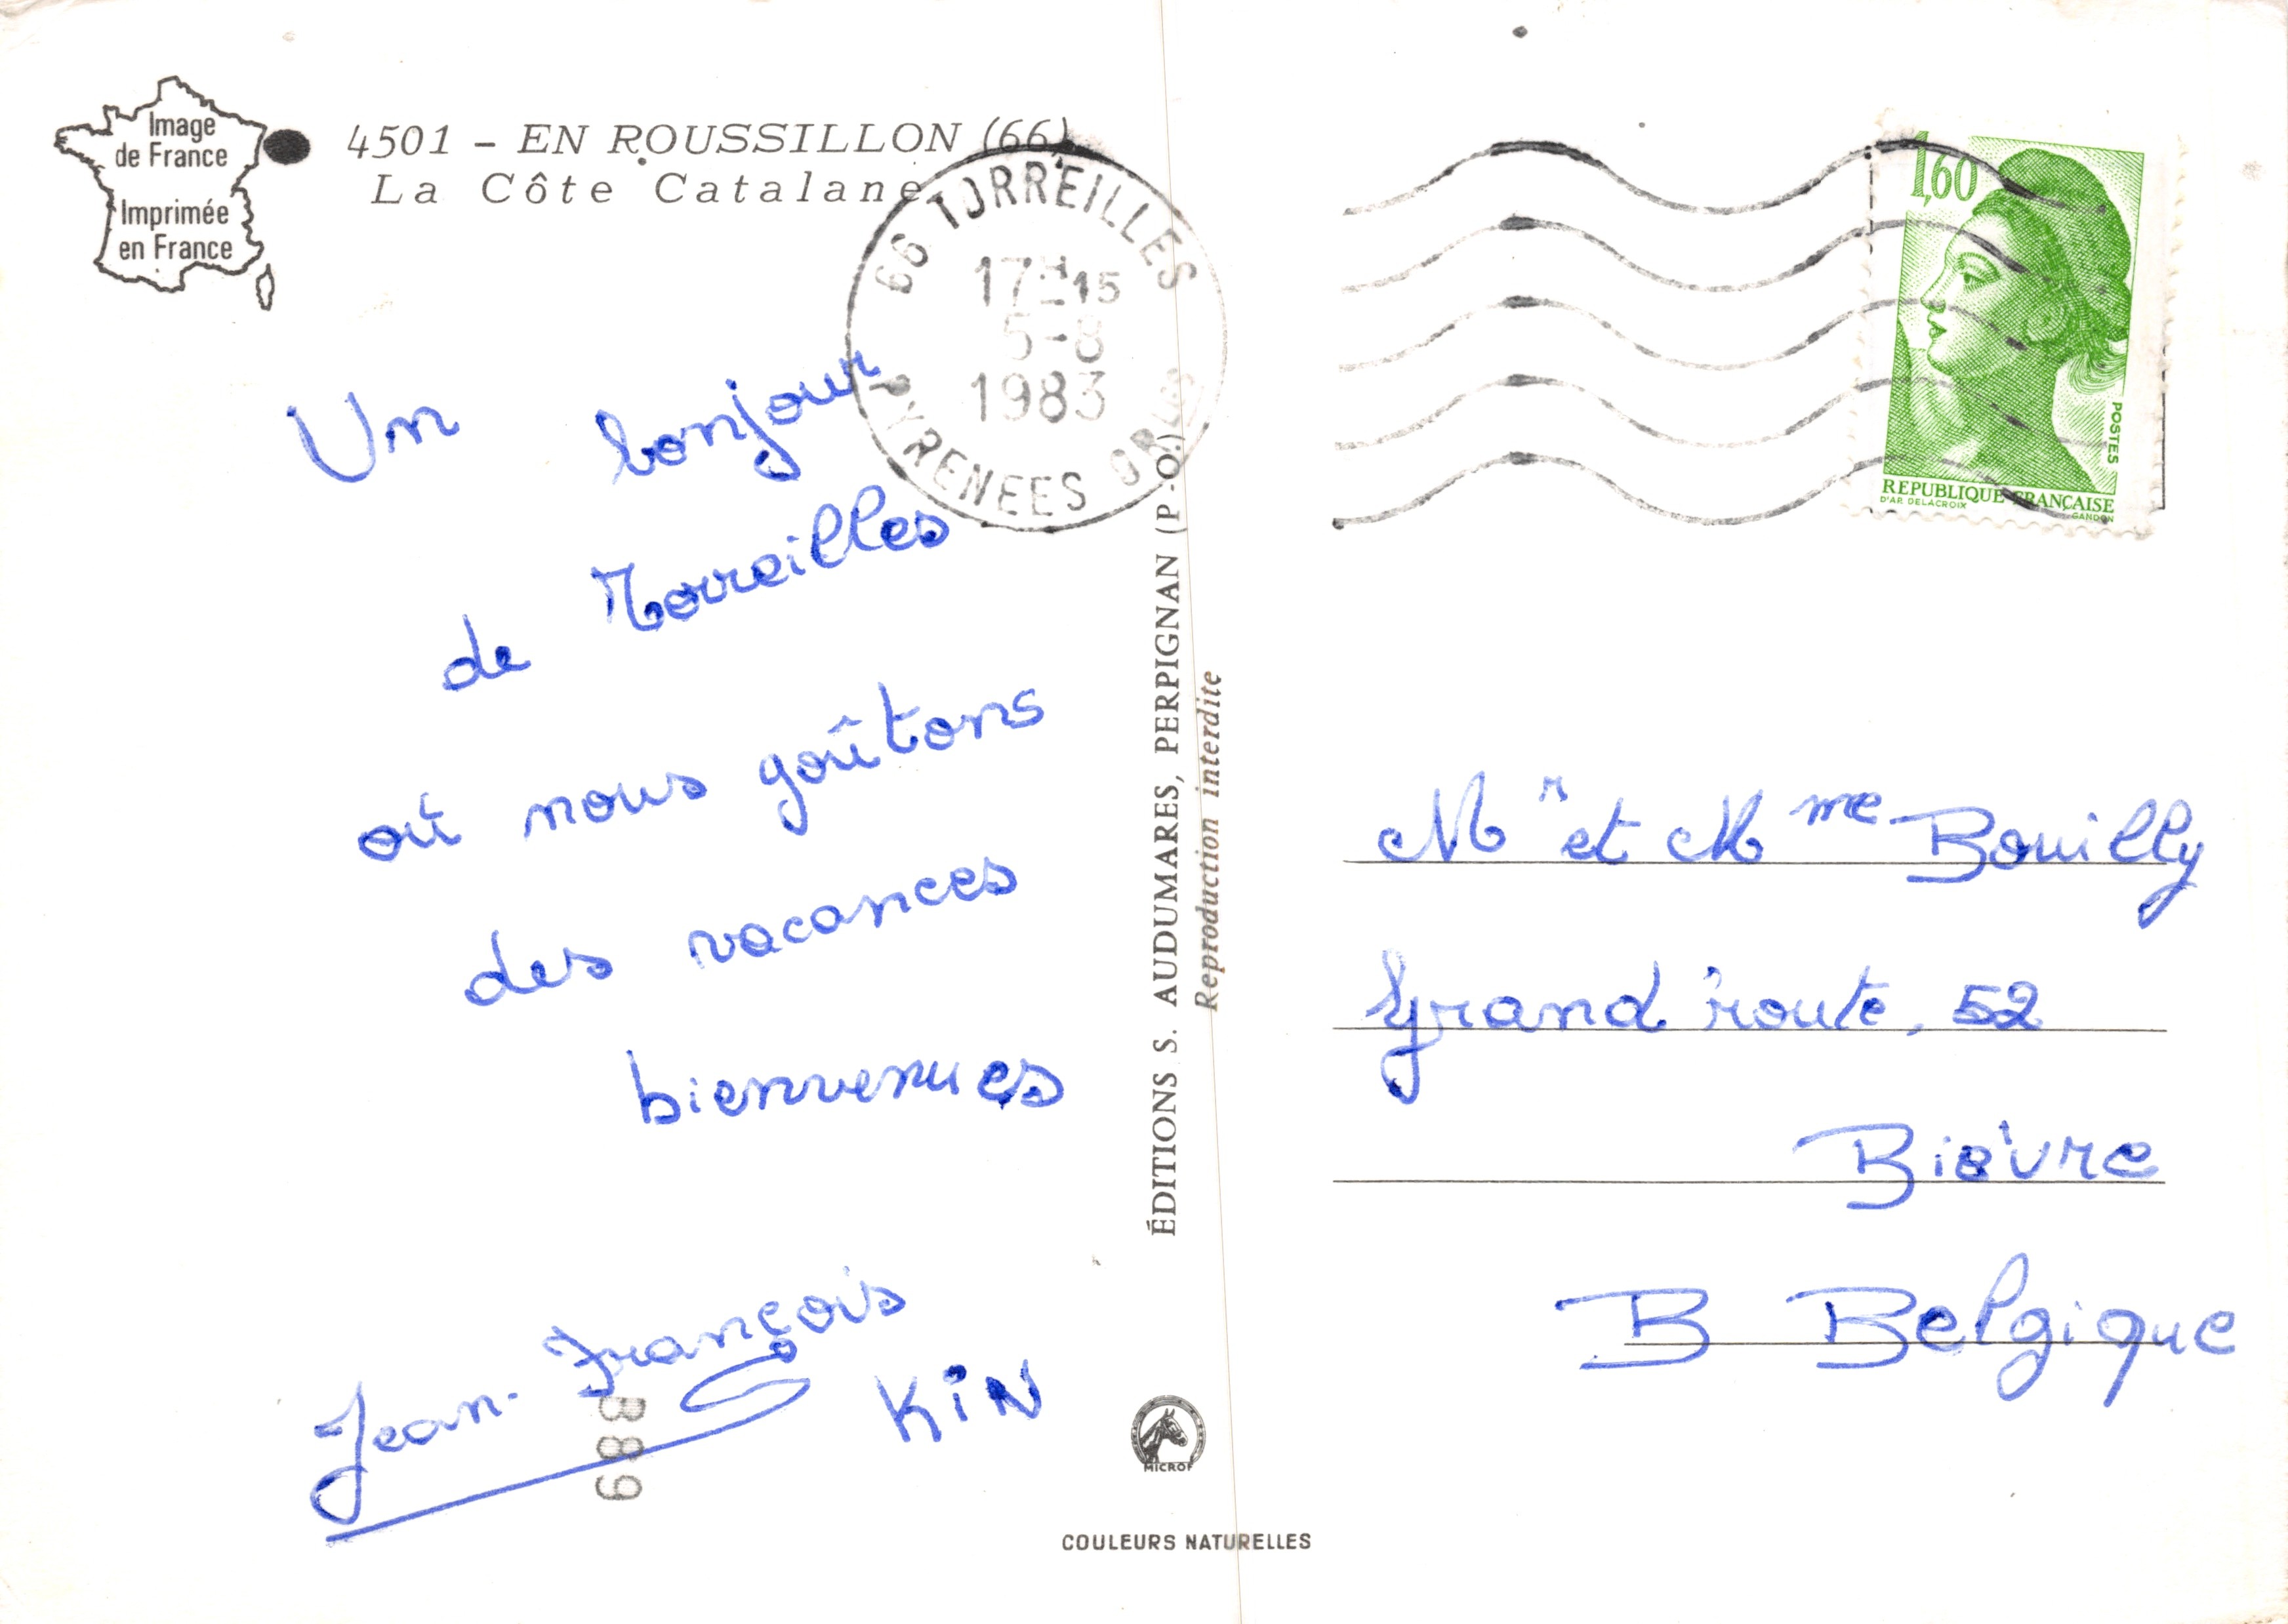 Image
de France
Imprimée
en France
4501 - EN ROUSSILLON (66)
La Côte Catalane
66 TORREILLES
17H15
5-8
1983
PYRENEES OR
1,60
POSTES
REPUBLIQUE FRANÇAISE
D'AP. DELACROIX
GANDON
Un bonjour
de Torreilles
où nous goûtons
des vacances
bienvenues
Jean-François
KiN
B889
ÉDITIONS S. AUDUMARES, PERPIGNAN (P.-O.)
Reproduction interdite
Mr et Mme Bouilly
Grand'route, 52
Bièvre
B Belgique
MICROF
COULEURS NATURELLES